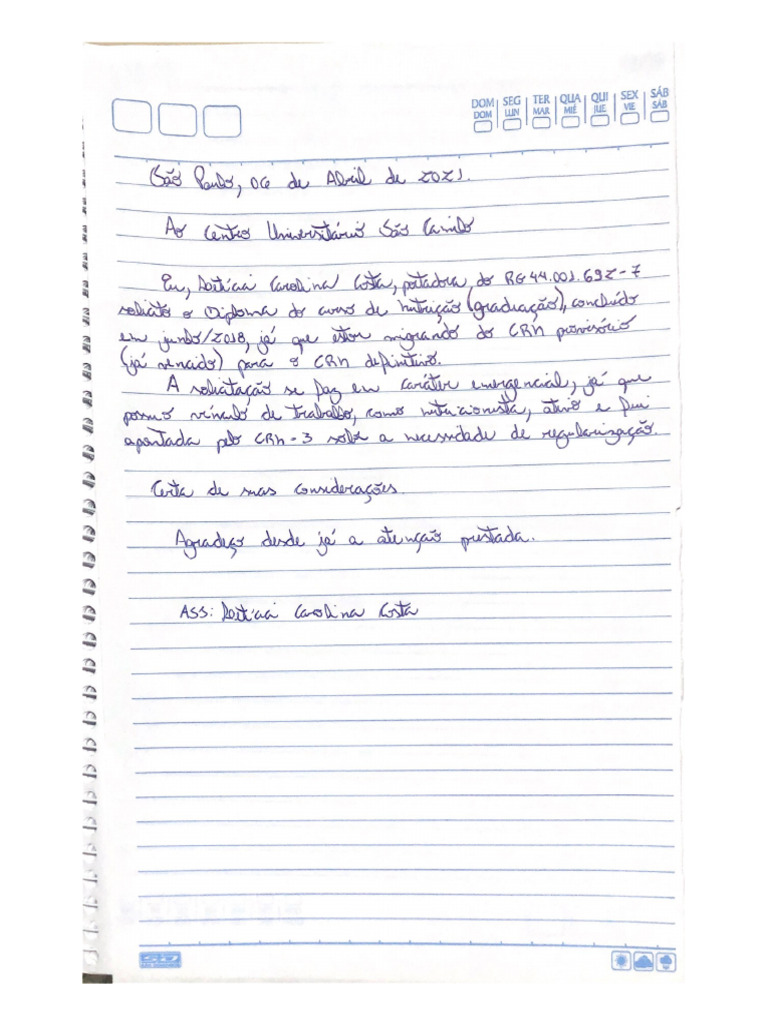 DOM SEG TER QUA QUI SEX SÁB
DOM LUN MAR MIÉ JUE VIE SÁB
São Paulo, 06 de Abril de 2021.
Ao Centro Universitário São Camilo
Eu, Letícia Carolina Costa, portadora do RG 44.001.692-7
solicito o Diploma do curso de Nutrição (graduação), concluído
em junho/2018, já que estou migrando do CRN provisório
(já vencido) para o CRN definitivo.
A solicitação se faz em caráter emergencial, já que
possuo vínculo de trabalho, como nutricionista, ativo e fui
apontada pelo CRN-3 sobre a necessidade de regularização.
Certa de suas considerações.
Agradeço desde já a atenção prestada.
ASS: Letícia Carolina Costa